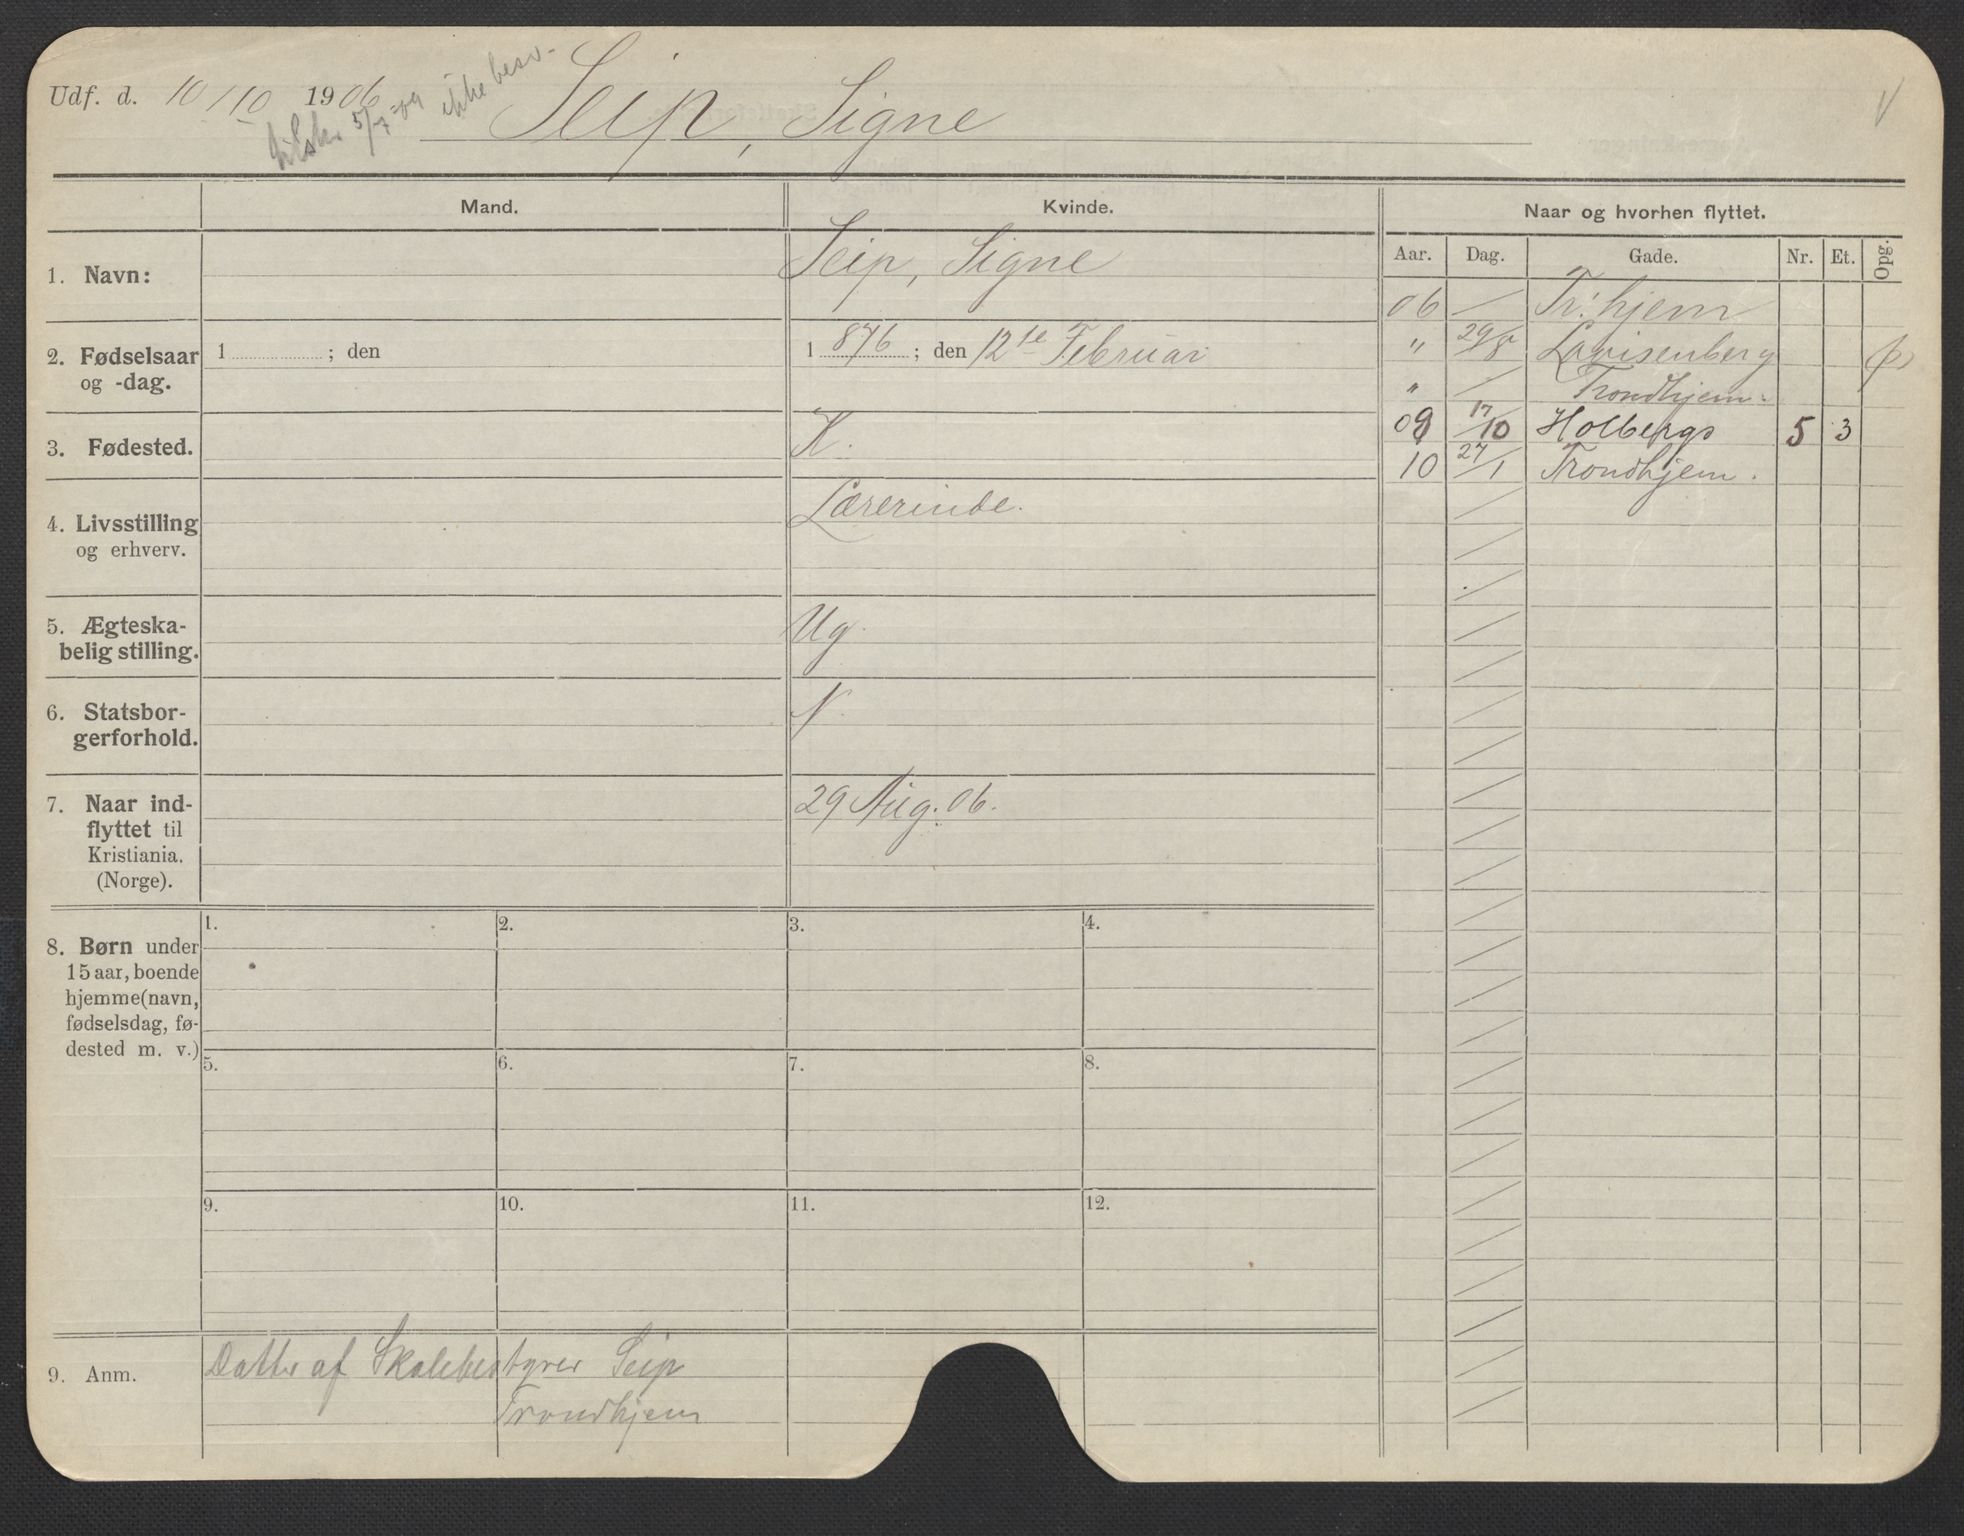 Udf. d. 10/10 1906
5/7-09 ikke besv.
Seip, Signe
V
Mand.
Kvinde.
Naar og hvorhen flyttet.
Aar. Dag. Gade. Nr. Et. Opg.
1. Navn:
Seip, Signe
06 Tr:hjem
" 29/8 Lovisenberg
" Trondhjem.
09 17/10 Holbergs 5 3
10 27/1 Trondhjem.
2. Fødselsaar
og -dag.
1 ; den
1876; den 12te Februar
3. Fødested.
K.
4. Livsstilling
og erhverv.
Lærerinde.
5. Ægteska-
belig stilling.
Ug.
6. Statsbor-
gerforhold.
N.
7. Naar ind-
flyttet til
Kristiania.
(Norge).
29 Aug. 06.
8. Børn under
15 aar, boende
hjemme (navn,
fødselsdag, fø-
dested m. v.)
1. 2. 3. 4.
5. 6. 7. 8.
9. 10. 11. 12.
9. Anm.
Datter af Skolebestyrer Seip
Trondhjem